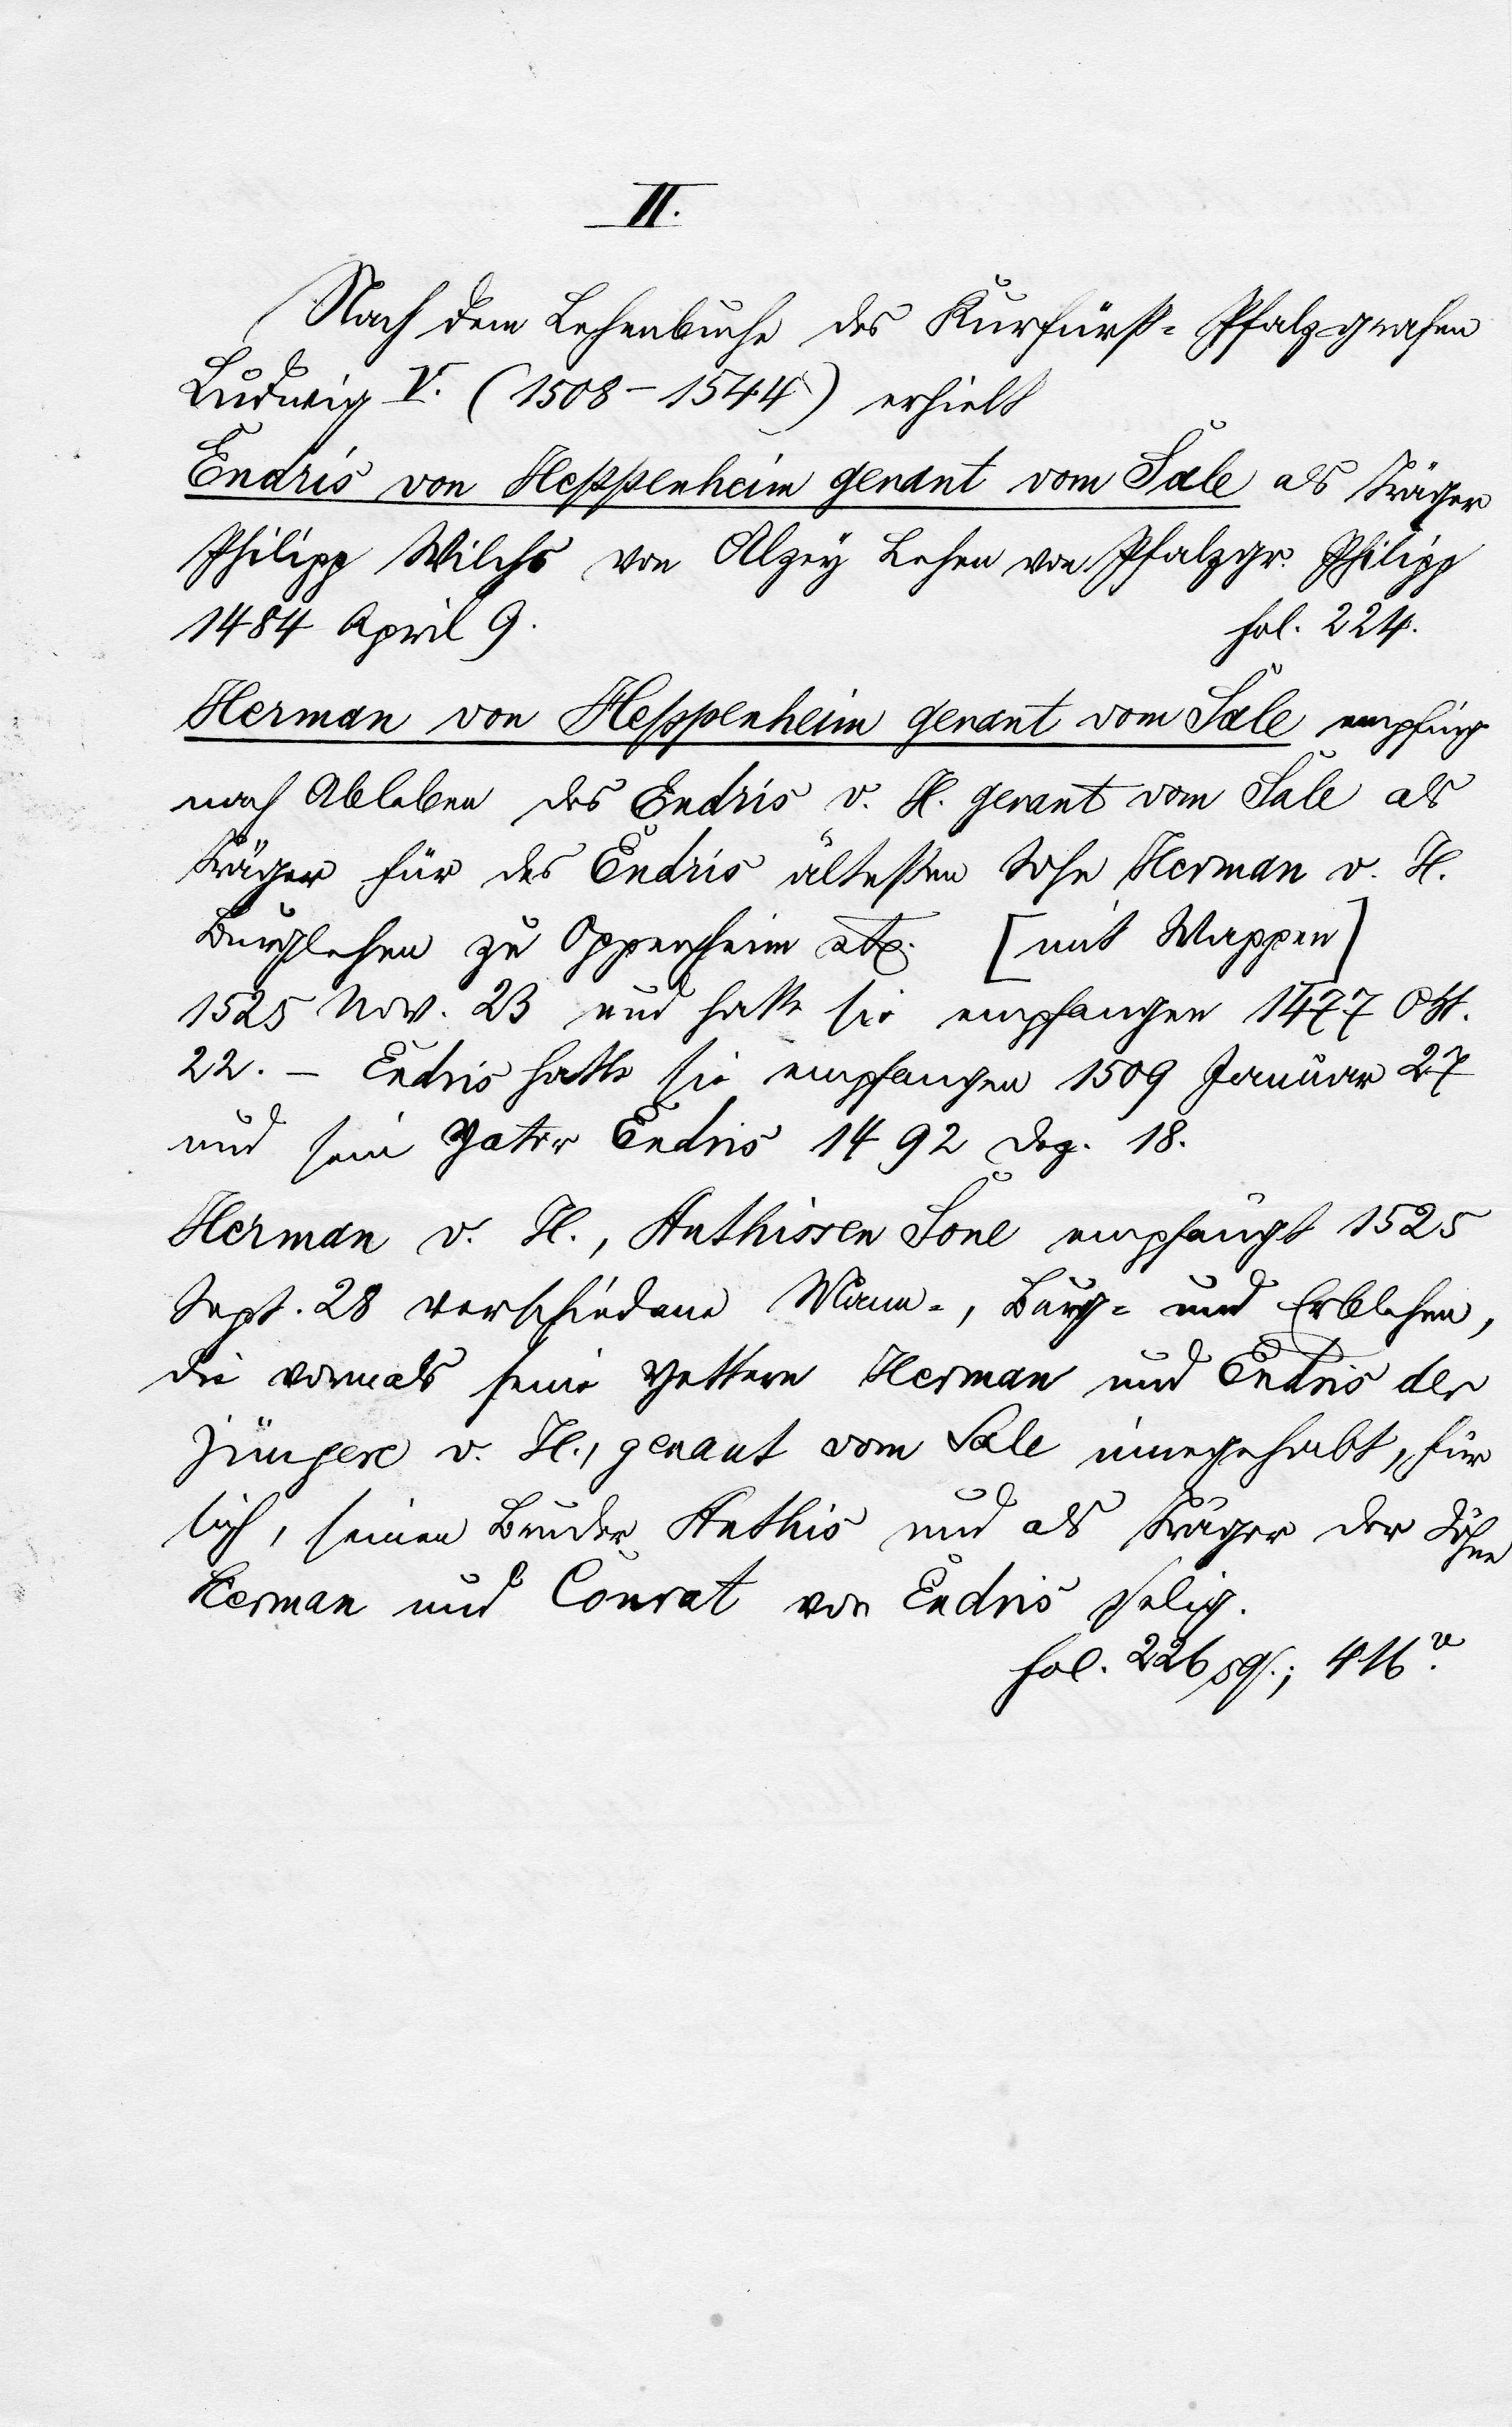 II.
Nach dem Lehenbuche des Kurfürst-Pfalzgrafen
Ludwig V. (1508-1544) erhielt
Endris von Heppenheim genant vom Sale als Träger
Philipp Wilchs von Alzey Lehen von Pfalzgr. Philipp
1484 April 9. fol. 224.
Herman von Heppenheim genant vom Sale empfing
nach Ableben des Endris v. H. genant vom Sale als
Träger für des Endris ältesten Sohn Herman v. H.
Burglehen zu Oppenheim etc. [mit Wappen]
1525 Nov. 23 und hatte sie empfangen 1477 Okt.
22. - Endris hatte sie empfangen 1509 Januar 27
und sein Vater Endris 1492 Dez. 18.
Herman v. H., Anthissen Sone empfängt 1525
Sept. 28 verschiedene Mann-, Burg- und Erblehen,
die vormals seine Vettern Herman und Endris der
jüngere v. H., genant vom Sale innegehabt, für
sich, seinen Bruder Anthis und als Träger der Söhne
Herman und Conrat von Endris selig.
fol. 226 sq.; 416v.